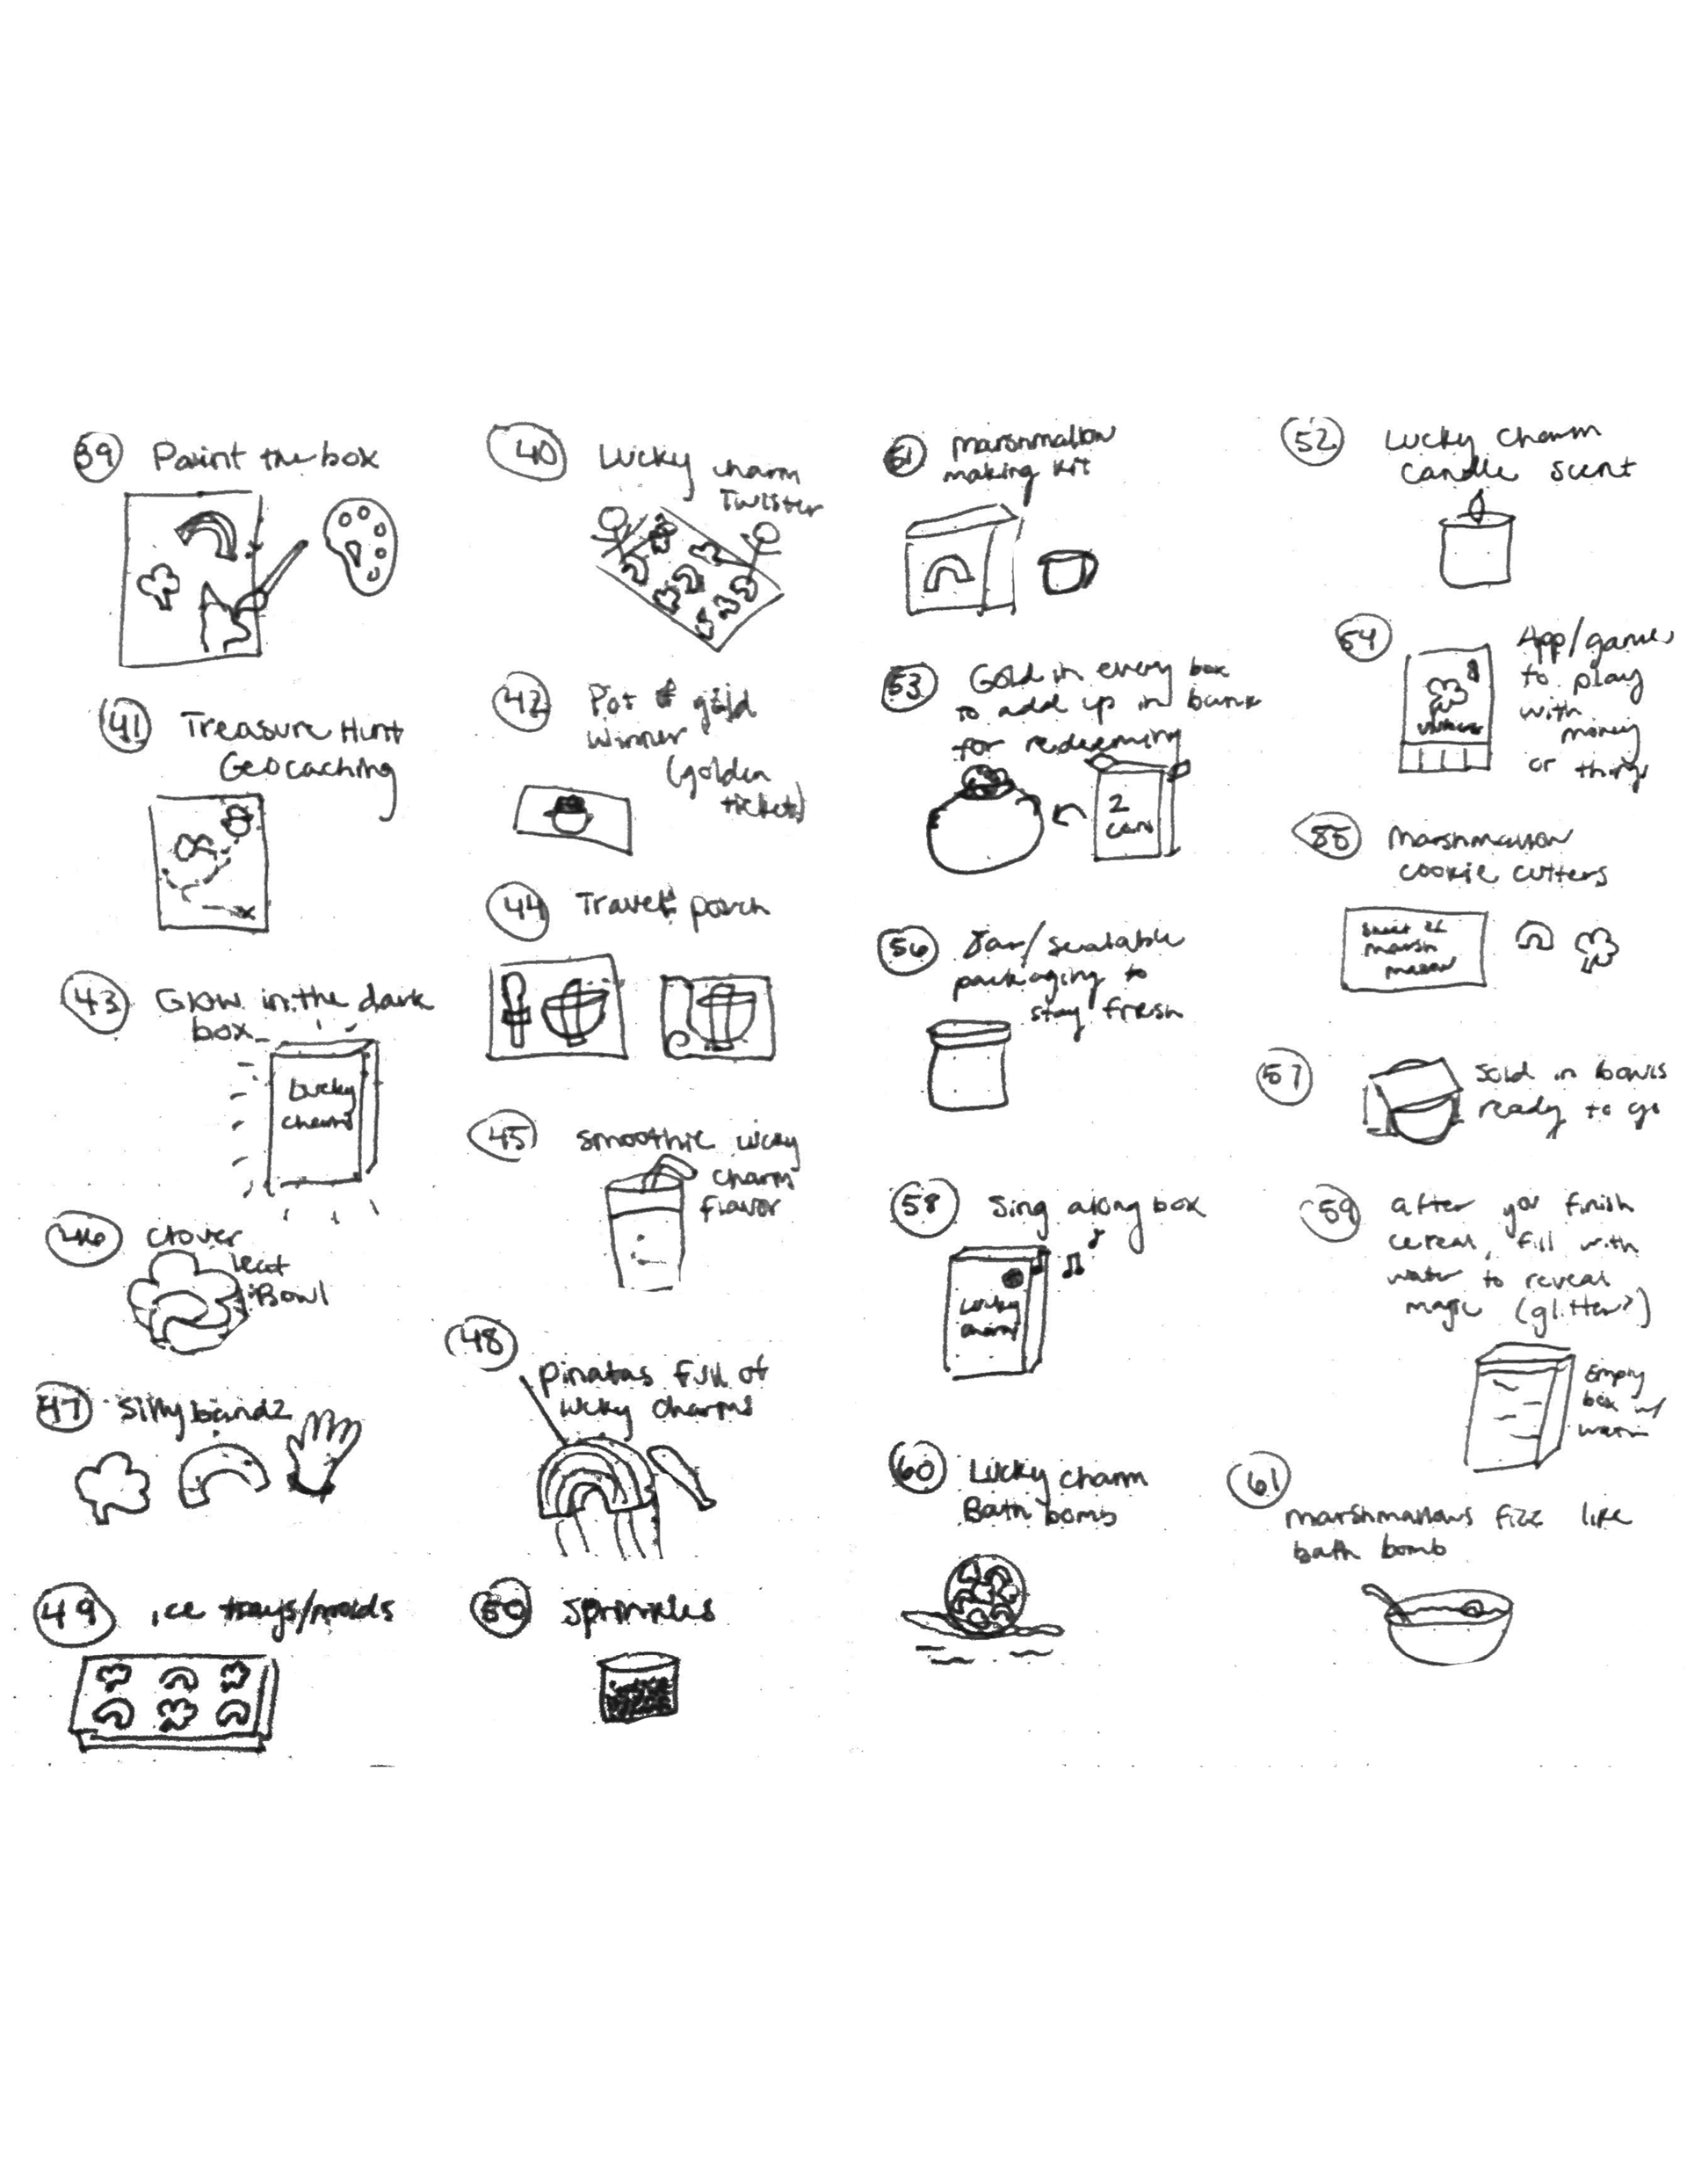 39 Paint the box
40 Lucky charm
Twister
41 Treasure Hunt
Geocaching
42 Pot of gold
winner
(golden
tickets)
43 Glow in the dark
box
Lucky
charms
44 Travel pouch
45 smoothie lucky
charm
flavor
46 clover
leaf
Bowl
47 Sillybandz
48
pinatas full of
lucky charms
49 ice trays/molds
50 sprinkles
51 marshmallow
making kit
52 Lucky charm
candle scent
53 Gold in every box
to add up in bank
for redeeming
2
54 App/games
to play
with
money
or things
55 Marshmallow
cookie cutters
sheet of
marsh
mallow
56 Jar/sealable
packaging to
stay fresh
57 sold in bowls
ready to go
58 Sing along box
Lucky
charms
59 after you finish
cereal, fill with
water to reveal
magic (glitter?)
Empty
box w/
60 Lucky charm
Bath bombs
61
marshmallows fizz like
bath bomb